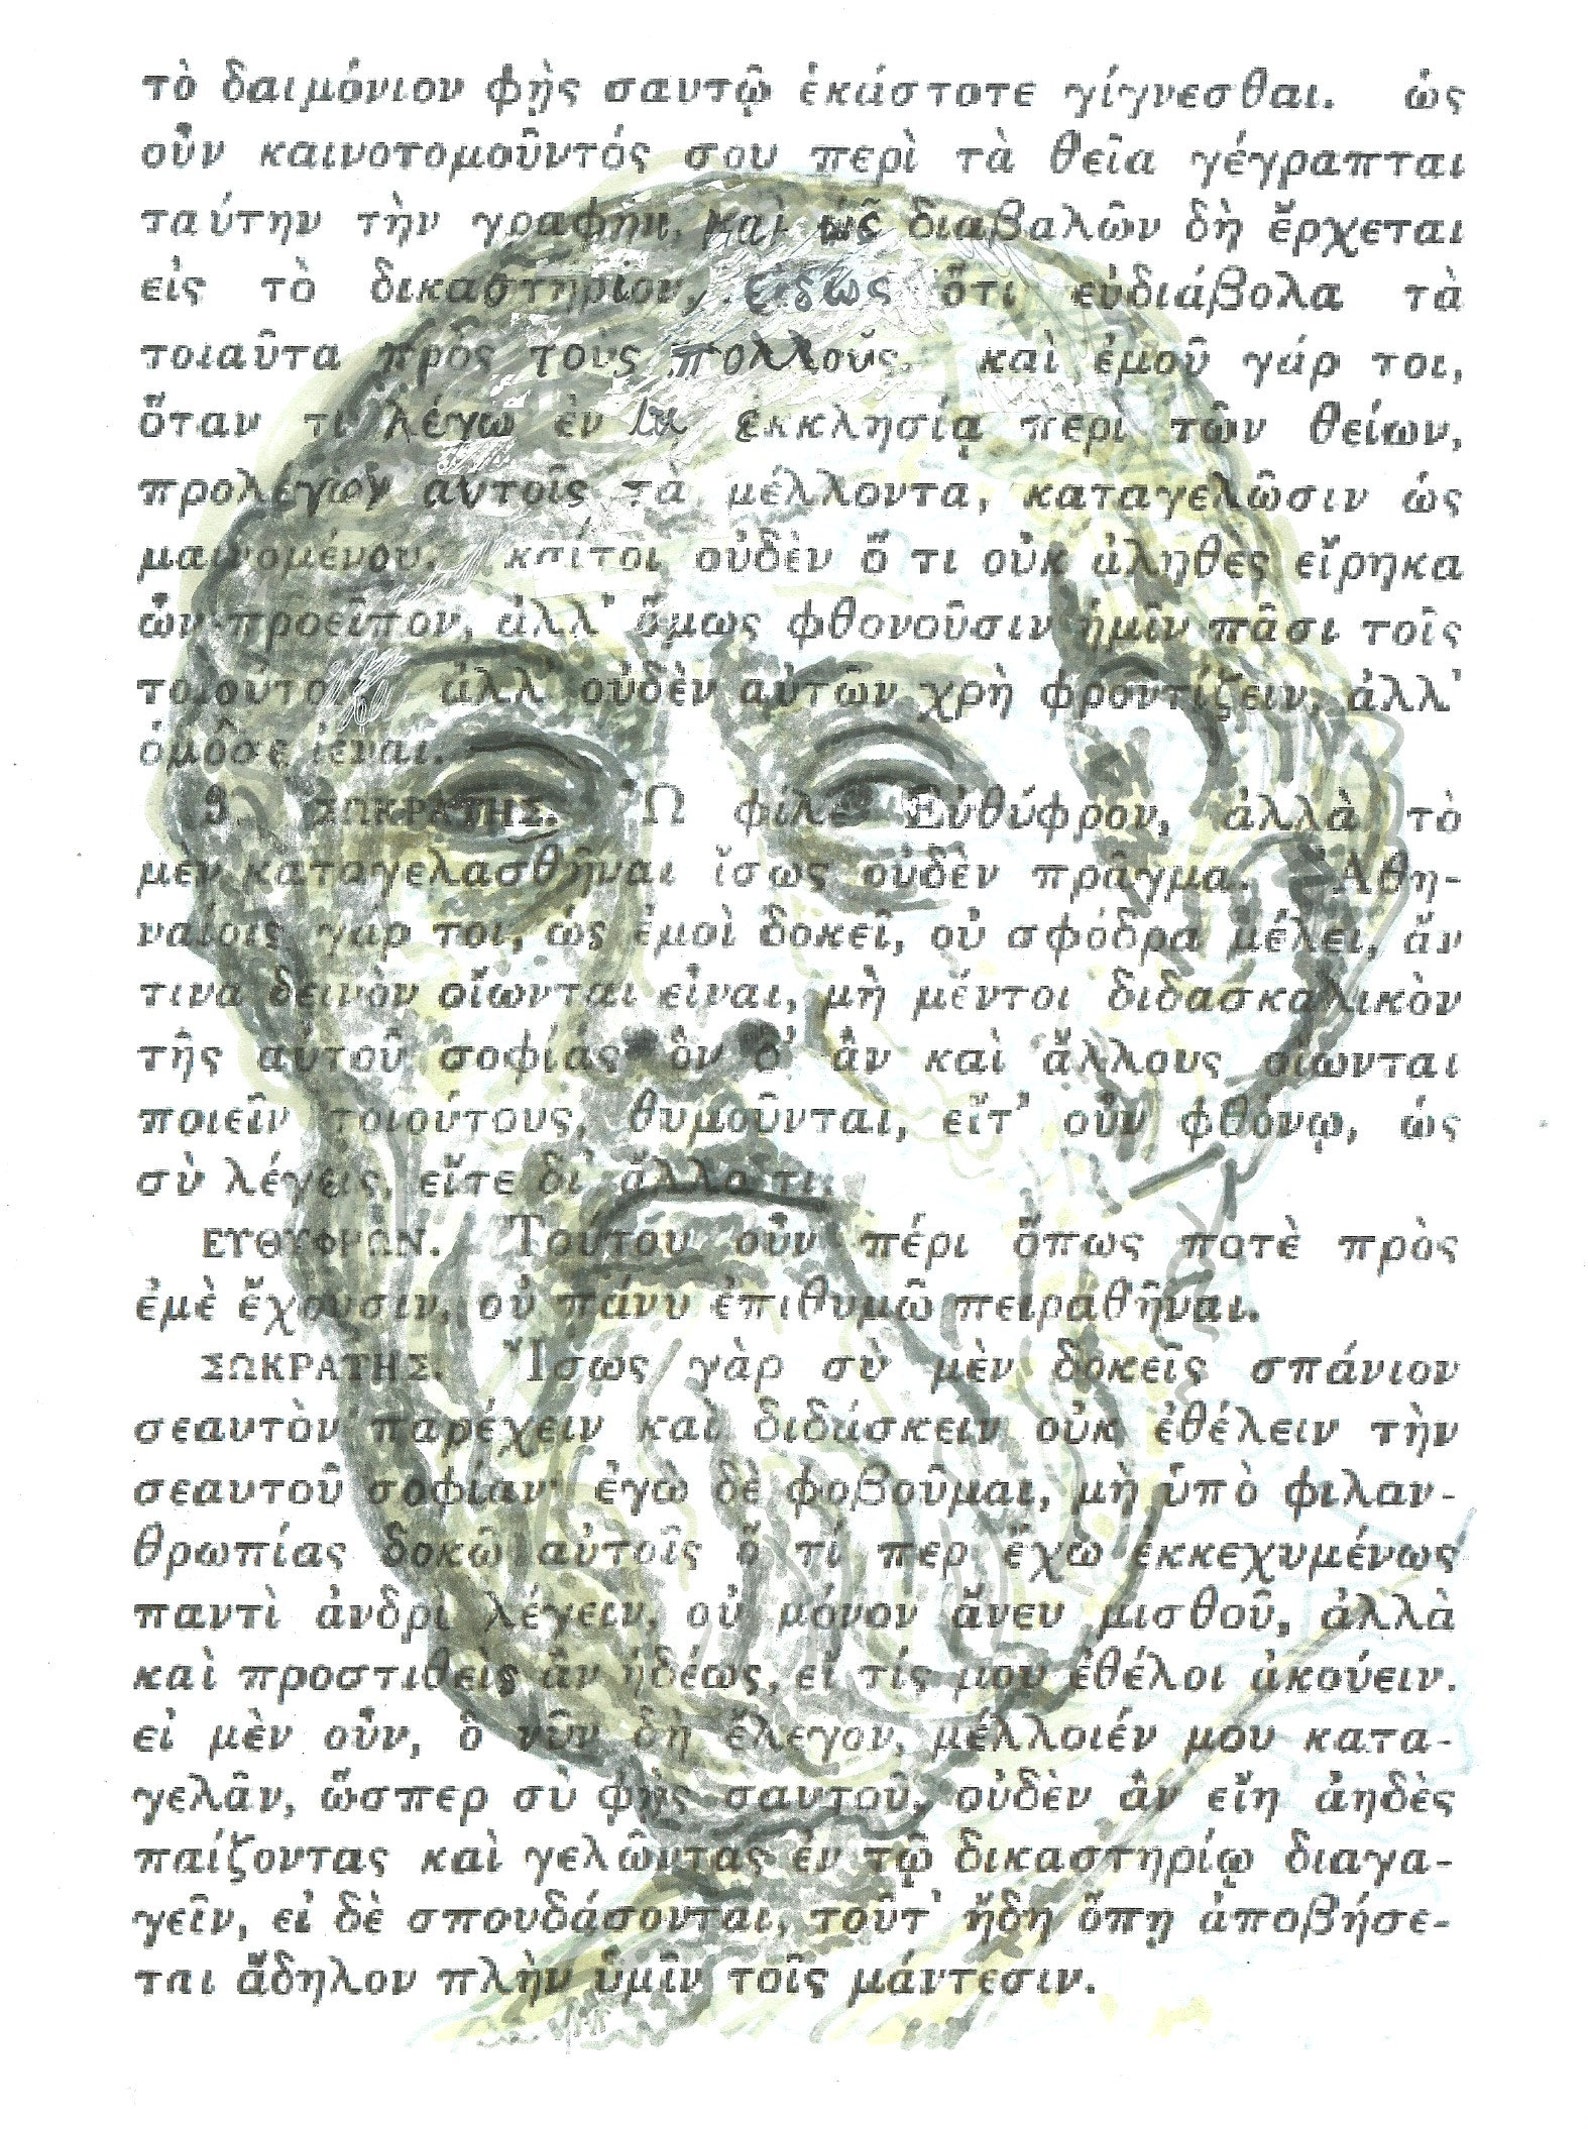 τὸ δαιμόνιον φῂς σαυτῷ ἑκάστοτε γίγνεσθαι. ὡς
οὖν καινοτομοῦντός σου περὶ τὰ θεῖα γέγραπται
ταύτην τὴν γραφήν, καὶ ὡς διαβαλῶν δὴ ἔρχεται
εἰς τὸ δικαστήριον, εἰδὼς ὅτι εὐδιάβολα τὰ
τοιαῦτα πρὸς τοὺς πολλούς. καὶ ἐμοῦ γάρ τοι,
ὅταν τι λέγω ἐν ἐκκλησίᾳ περὶ τῶν θείων,
προλέγων αὐτοῖς τὰ μέλλοντα, καταγελῶσιν ὡς
μαινομένου. καίτοι οὐδὲν ὅ τι οὐκ ἀληθὲς εἴρηκα
ὧν προεῖπον, ἀλλ' ὅμως φθονοῦσιν ἡμῖν πᾶσι τοῖς
ἀλλ' οὐδὲν αὐτῶν χρὴ φροντίζειν, ἀλλ'
ὁμόσε ἰέναι.
3. ΣΩΚΡΑΤΗΣ. Ὦ φίλε Εὐθύφρον, ἀλλὰ τὸ
μὲν καταγελασθῆναι ἴσως οὐδὲν πρᾶγμα. Ἀθη-
ναίοις γάρ τοι, ὡς ἐμοὶ δοκεῖ, οὐ σφόδρα μέλει, ἄν
τινα δεινὸν οἴωνται εἶναι, μὴ μέντοι διδασκαλικὸν
τῆς αὑτοῦ σοφίας· ὃν δ' ἂν καὶ ἄλλους οἴωνται
ποιεῖν τοιούτους, θυμοῦνται, εἴτ' οὖν φθόνῳ, ὡς
σὺ λέγεις, εἴτε δι' ἄλλο τι.
ΕΥΘΥΦΡΩΝ. Τούτου οὖν πέρι ὅπως ποτὲ πρὸς
ἐμὲ ἔχουσιν, οὐ πάνυ ἐπιθυμῶ πειραθῆναι.
ΣΩΚΡΑΤΗΣ. Ἴσως γὰρ σὺ μὲν δοκεῖς σπάνιον
σεαυτὸν παρέχειν καὶ διδάσκειν οὐκ ἐθέλειν τὴν
σεαυτοῦ σοφίαν· ἐγὼ δὲ φοβοῦμαι, μὴ ὑπὸ φιλαν-
θρωπίας δοκῶ αὐτοῖς ὅ τί περ ἔχω ἐκκεχυμένως
παντὶ ἀνδρὶ λέγειν, οὐ μόνον ἄνευ μισθοῦ, ἀλλὰ
καὶ προστιθεὶς ἂν ἡδέως, εἴ τίς μου ἐθέλοι ἀκούειν.
εἰ μὲν οὖν, ὃ νῦν δὴ ἔλεγον, μέλλοιέν μου κατα-
γελᾶν, ὥσπερ σὺ φῂς σαυτοῦ, οὐδὲν ἂν εἴη ἀηδὲς
παίζοντας καὶ γελῶντας ἐν τῷ δικαστηρίῳ διαγα-
γεῖν, εἰ δὲ σπουδάσονται, τοῦτ' ἤδη ὅπῃ ἀποβήσε-
ται ἄδηλον πλὴν ὑμῖν τοῖς μάντεσιν.